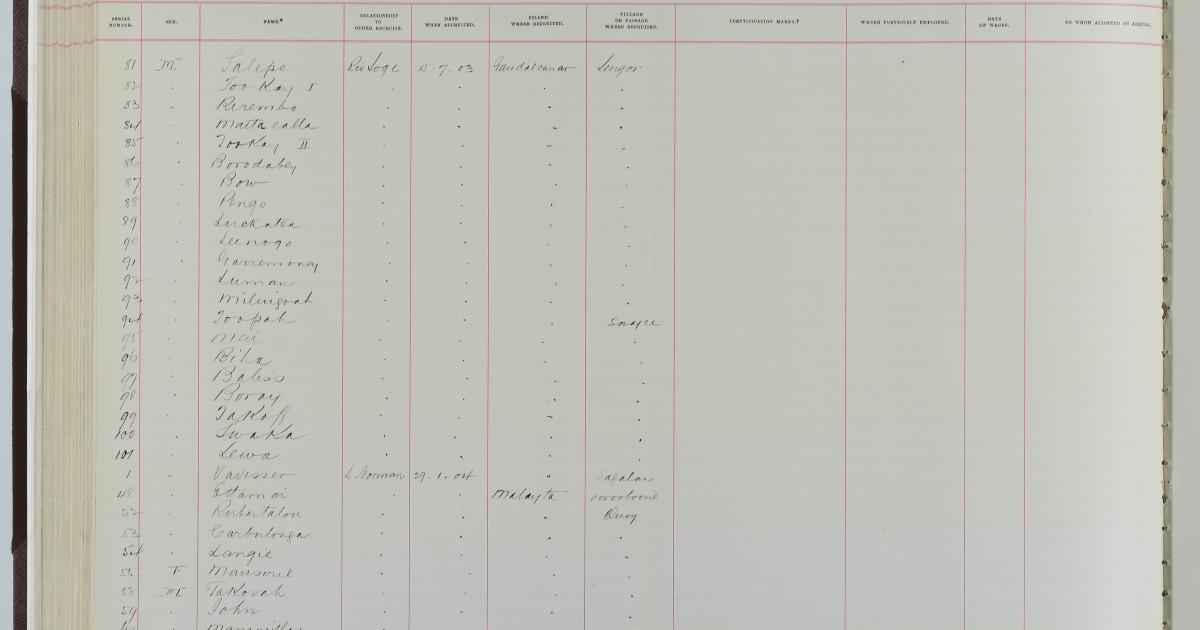 SERIAL NUMBER. SEX. NAME.* RELATIONSHIP TO OTHER RECRUITS. DATE WHEN RECRUITED. ISLAND WHERE RECRUITED. VILLAGE OR PASSAGE WHERE RECRUITED. IDENTIFICATION MARKS.† WHERE PREVIOUSLY EMPLOYED. RATE OF WAGES. TO WHOM ALLOTTED ON ARRIVAL.
81 M Salepo Rio Loge 15.7.03 Guadalcanar Lengor
82 Too Kay I
83 Rerembo
84 Matta calla
85 TooKay II
86 Borodabey
87 Bow
88 Pengo
89 Luckatea
90 Leunogo
91 Garremoney
92 Luman
93 Milingoah
94 Toopah
95 Mai
96 Biha
97 Baliss
98 Boray
99 Takoff
100 Swaka
101 Lewa
1 Vavisser L Norman 29.1.04 Sagalan
48 Estamai Malayta
52 Rubertalou Quoy
53 Carbulonga
54 Langie
55 F
58 M Takovah
59 John